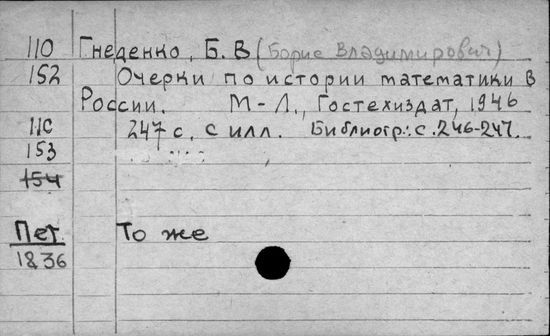 110 Гнеденко, Б. В (Борис Владимирович)
152 Очерки по истории математики в
России. М-Л., Гостехиздат, 1946
11C 247 с. с илл. Библиогр.: с. 246-247.
153
154
Пет То же
1836